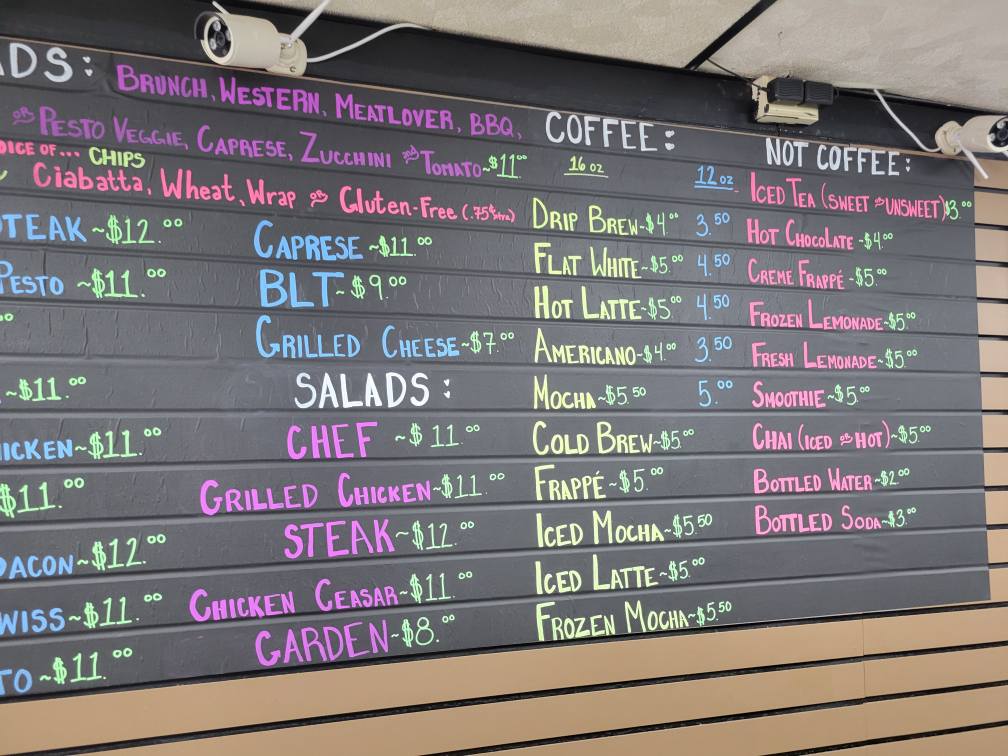 BRUNCH, WESTERN, MEATLOVER, BBQ,
OR PESTO VEGGIE, CAPRESE, ZUCCHINI AND TOMATO~$11.00
OF... CHIPS
Ciabatta, Wheat, Wrap OR Gluten-Free (.75¢ Xtra)
~$12.00
PESTO ~$11.00
~$11.00
~$11.00
$11.00
~$12.00
~$11.00
~$11.00
CAPRESE ~$11.00
BLT~$9.00
GRILLED CHEESE~$7.00
SALADS:
CHEF ~$11.00
GRILLED CHICKEN~$11.00
STEAK~$12.00
CHICKEN CEASAR~$11.00
GARDEN~$8.00
COFFEE:
16 oz 12 oz
DRIP BREW~$4.00 3.50
FLAT WHITE~$5.00 4.50
HOT LATTE~$5.00 4.50
AMERICANO~$4.00 3.50
MOCHA~$5.50 5.00
COLD BREW~$5.00
FRAPPÉ~$5.00
ICED MOCHA~$5.50
ICED LATTE~$5.00
FROZEN MOCHA~$5.50
NOT COFFEE:
ICED TEA (SWEET OR UNSWEET)$3.00
HOT CHOCOLATE~$4.00
CREME FRAPPÉ~$5.00
FROZEN LEMONADE~$5.00
FRESH LEMONADE~$5.00
SMOOTHIE~$5.00
CHAI (ICED OR HOT)~$5.00
BOTTLED WATER~$2.00
BOTTLED SODA~$3.00